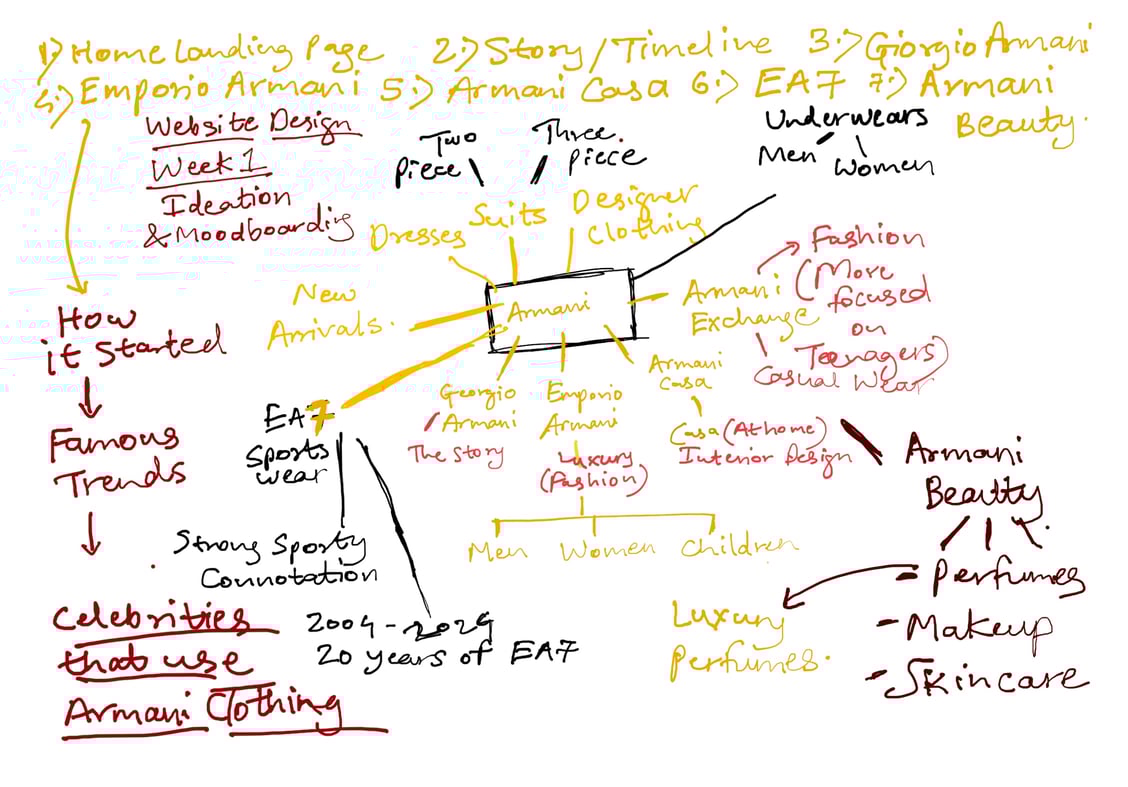 1) Home Landing Page 2:) Story/Timeline 3:) Giorgio Armani
4:) Emporio Armani 5:) Armani Casa 6:) EA7 7:) Armani
Beauty.
Website Design
Week 1
Ideation
& Moodboarding
Two
piece
Three
piece
Underwears
Men
Women
Dresses
Suits
Designer
Clothing
New
Arrivals.
Armani
Armani
Exchange
Fashion
(More
focused
on
Teenagers)
Casual Wear
How
it Started
Famous
Trends
Celebrities
that use
Armani Clothing
EA7
Sports
wear
Strong Sporty
Connotation
2004-2024
20 years of EA7
Georgio
Armani
The Story
Emporio
Armani
Luxury
(Fashion)
Men Women Children
Armani
Casa
Casa (At home)
Interior Design
Armani
Beautty
- Perfumes
- Makeup
- Skincare
Luxury
Perfumes.